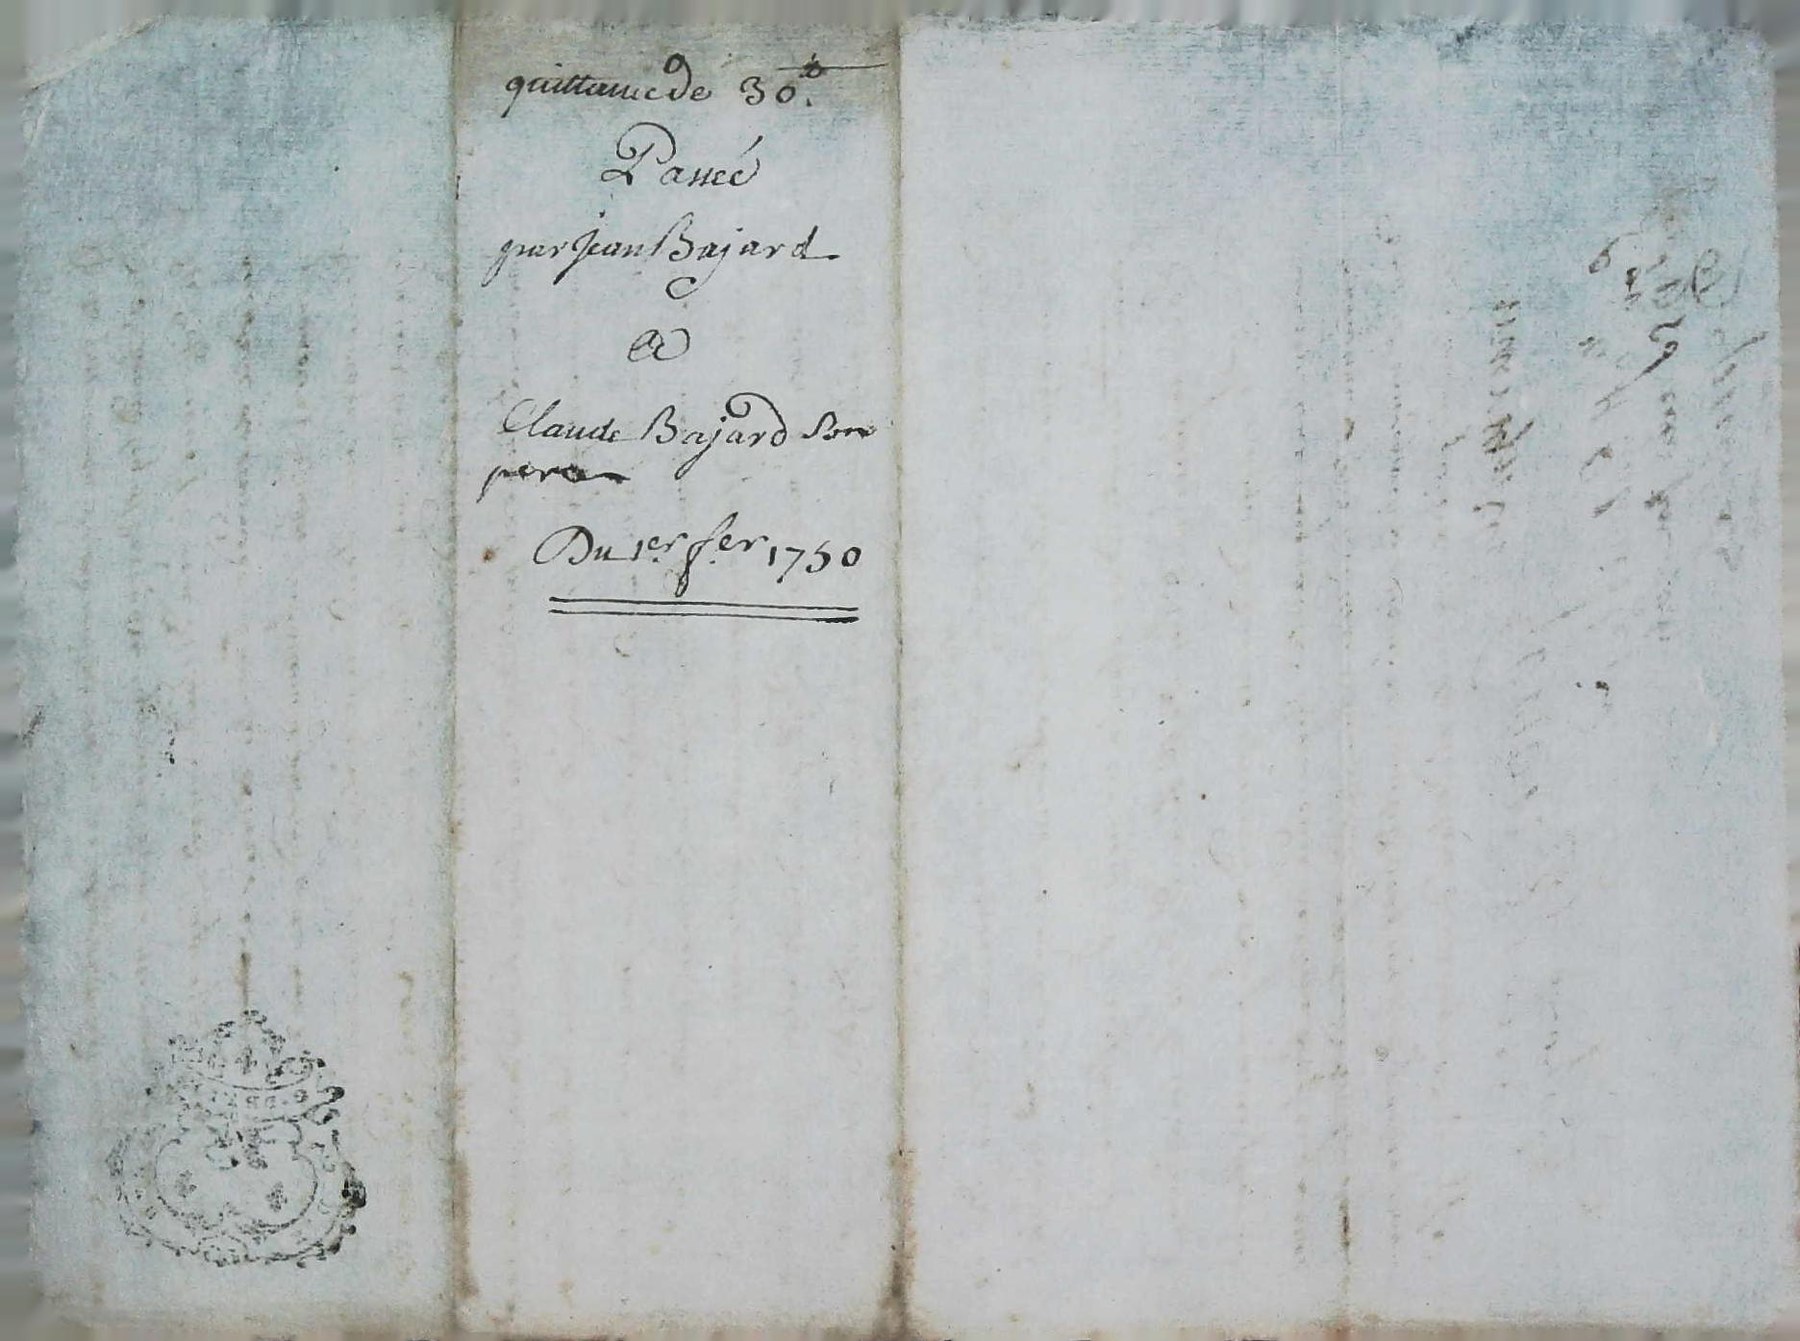 quittance de 30ᵗᵗ.
Passée
par Jean Bajard
a
Claude Bajard Son
pere
Du 1er fer 1750